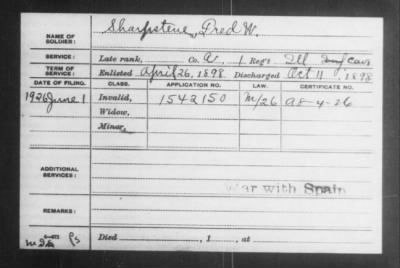 NAME OF SOLDIER: Sharpsteen, Fred W.
SERVICE: Late rank, Co. A, 1 Reg't Ill Cav
TERM OF SERVICE: Enlisted April 26, 1898. Discharged Oct 11, 1898
DATE OF FILING. CLASS. APPLICATION NO. LAW. CERTIFICATE NO.
1926 June 1 Invalid, 1542150 M/26 A8-4-26
Widow,
Minor,
ADDITIONAL SERVICES:
War with Spain
REMARKS:
Died , 1 , at